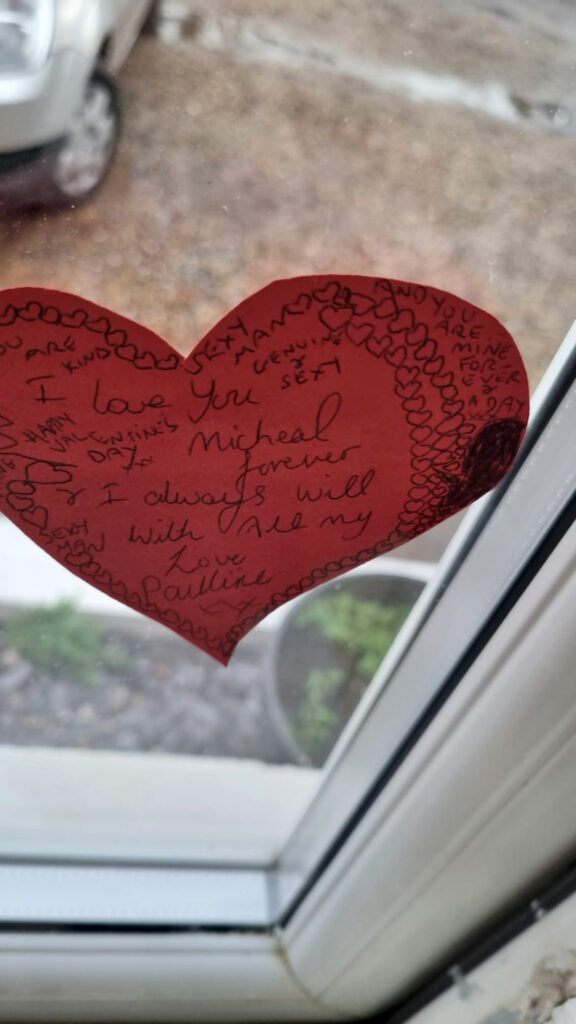 YOU ARE
KIND
SEXY
MAN
GENUINE
&
SEXY
AND YOU
ARE
MINE
FOR
EVER
&
A DAY
I love You
HAPPY
VALENTINE'S
DAY
xx
Micheal
forever
& I always will
with All my
Love
Paulline
xx
SEXY
MAN